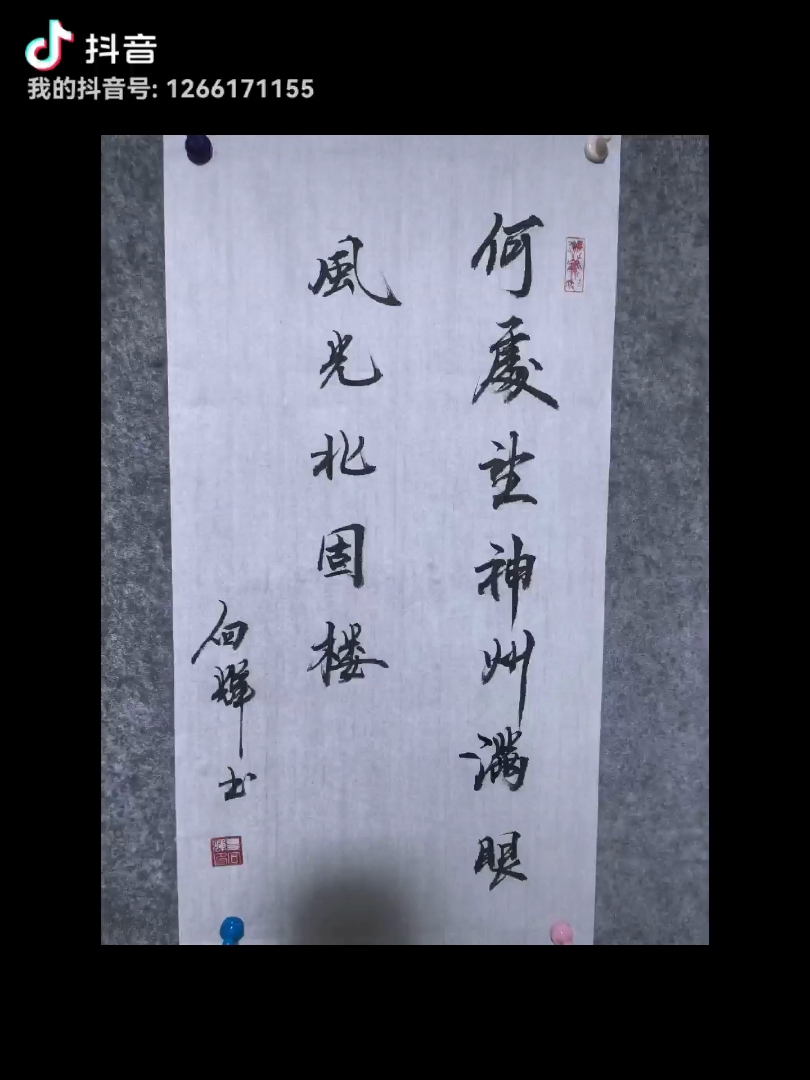 抖音
我的抖音号: 1266171155
何處望神州滿眼
風光北固楼
向輝书